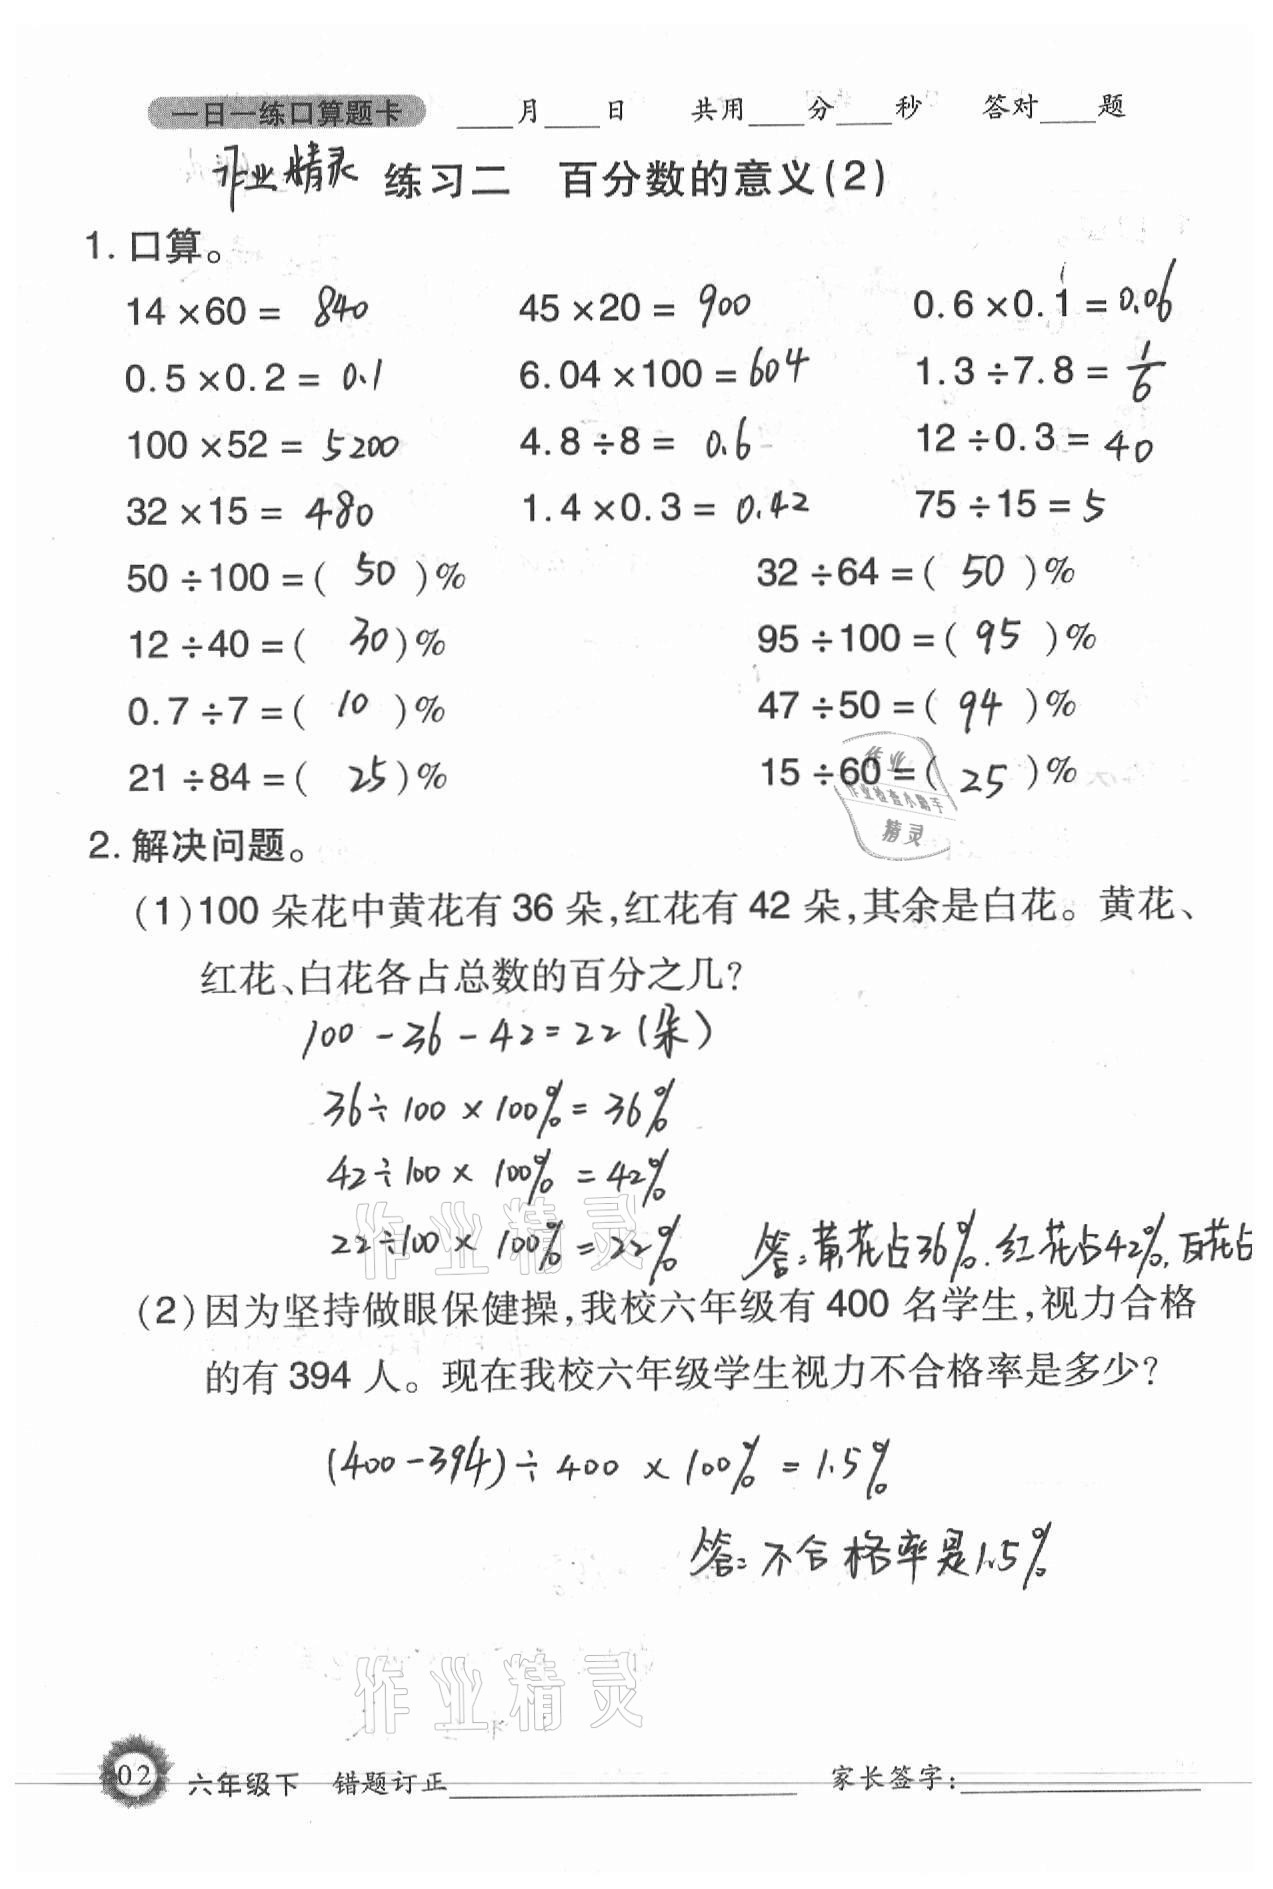 一日一练口算题卡 ____月____日 共用____分____秒 答对____题
作业精灵 练习二 百分数的意义(2)
1. 口算。
14×60= 840 45×20= 900 0.6×0.1=0.06
0.5×0.2= 0.1 6.04×100=604 1.3÷7.8= 1/6
100×52= 5200 4.8÷8= 0.6 12÷0.3= 40
32×15= 480 1.4×0.3= 0.42 75÷15=5
50÷100=( 50 )% 32÷64=( 50 )%
12÷40=( 30 )% 95÷100=( 95 )%
0.7÷7=( 10 )% 47÷50=( 94 )%
21÷84=( 25 )% 15÷60=( 25 )%
作业
作业检查小助手
精灵
2. 解决问题。
(1)100朵花中黄花有36朵,红花有42朵,其余是白花。黄花、
红花、白花各占总数的百分之几?
100-36-42=22(朵)
36÷100×100%=36%
42÷100×100%=42%
22÷100×100%=22% 答:黄花占36%.红花占42%,白花占
作业精灵
(2)因为坚持做眼保健操,我校六年级有400名学生,视力合格
的有394人。现在我校六年级学生视力不合格率是多少?
(400-394)÷400×100%=1.5%
答:不合格率是1.5%
作业精灵
02 六年级下 错题订正____ 家长签字:____